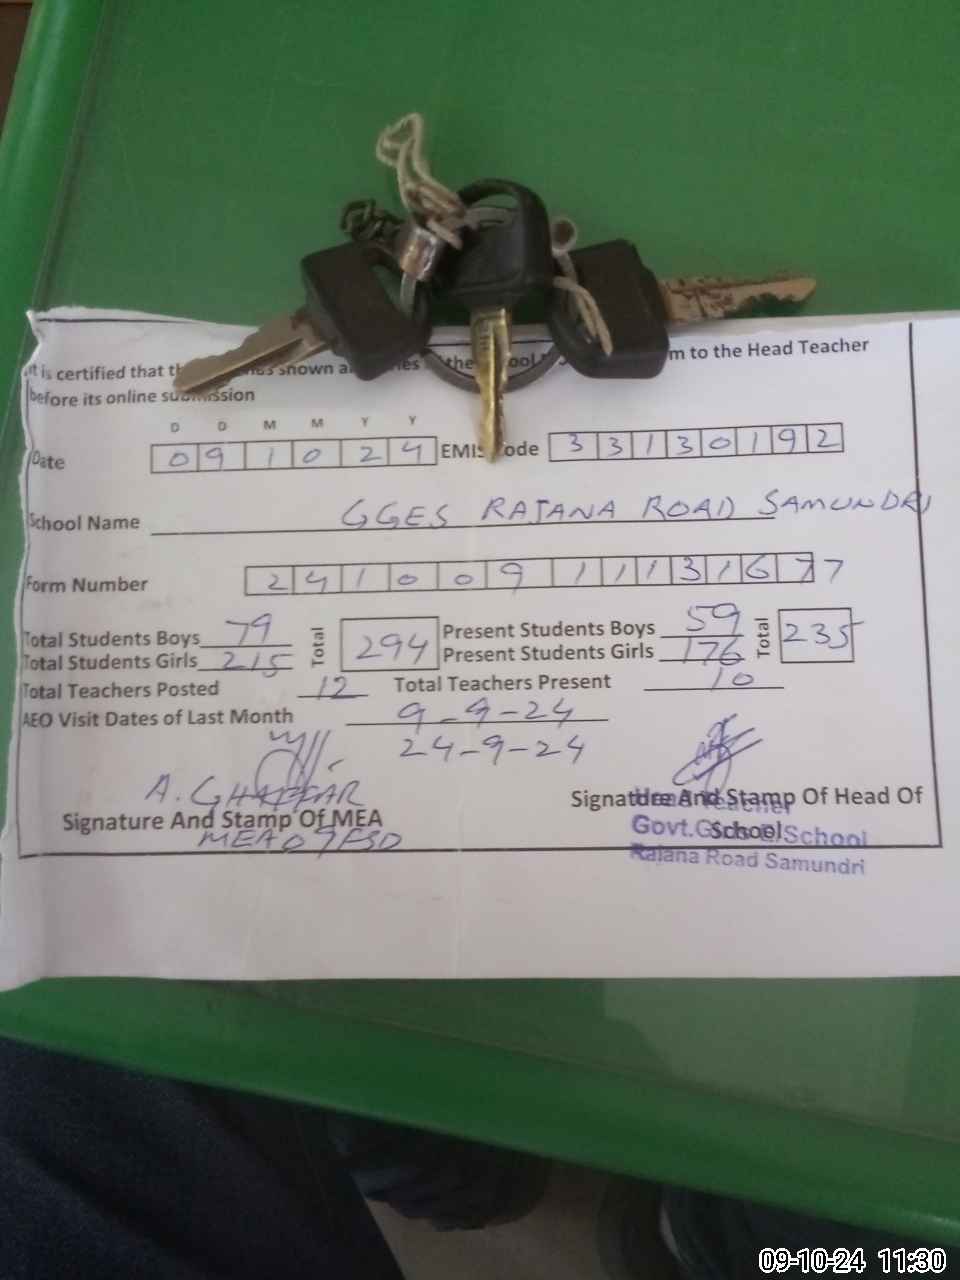 It is certified that shown the m to the Head Teacher
before its online submission
D D M M Y Y
Date 0 9 1 0 2 4 EMIS Code 3 3 1 3 0 1 9 2
School Name GGES RAJANA ROAD SAMUNDRI
Form Number 2 4 1 0 0 9 1 1 1 3 1 6 7 7
Total Students Boys 79 Total 294 Present Students Boys 59 Total 235
Total Students Girls 215 Present Students Girls 176
Total Teachers Posted 12 Total Teachers Present 10
AEO Visit Dates of Last Month 9-9-24
24-9-24
A. GHAFFAR
Signature And Stamp Of MEA Signature And Stamp Of Head Of
School
MEA 07 FSD
Head Teacher
Govt. School
Rajana Road Samundri
09-10-24 11:30